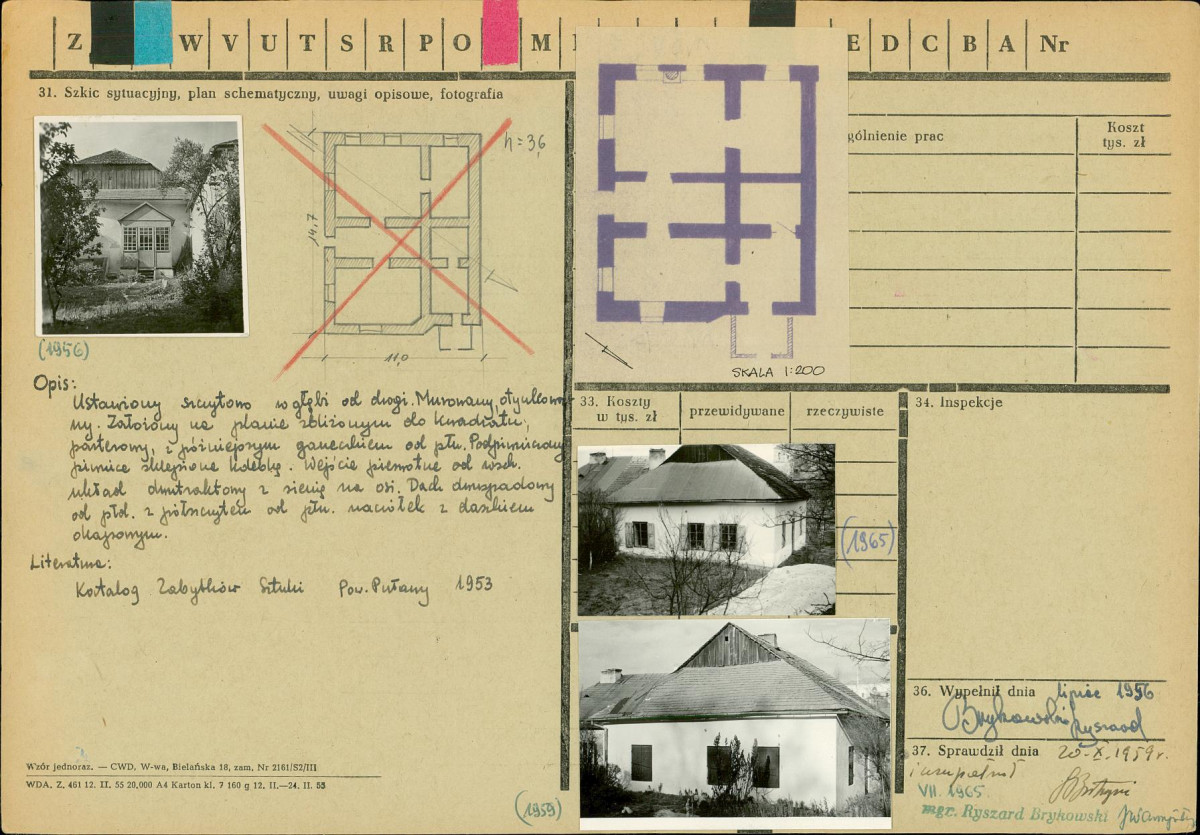 Z W V U T S R P O M E D C B A Nr
31. Szkic sytuacyjny, plan schematyczny, uwagi opisowe, fotografia
h = 3,6
14,7
11,0
(1956)
SKALA 1:200
gólnienie prac
Koszt
tys. zł
Opis:
Ustawiony szczytowo w głębi od drogi. Murowany otynkowa
ny. Założony na planie zbliżonym do kwadratu,
parterowy, z późniejszym gankiem od płn. Podpiwniczony
piwnice sklepione kolebką. Wejście pierwotne od wsch.
układ dwutraktowy z sienią na osi. Dach dwuspadowy
od płd. z półszczytem od płn. naczółek z daszkiem
okapowym.
Literatura:
Katalog Zabytków Sztuki Pow. Puławy 1953
33. Koszty
w tys. zł
przewidywane
rzeczywiste
34. Inspekcje
(1965)
(1959)
36. Wypełnił dnia lipiec 1956
Brykowski Ryszard
37. Sprawdził dnia 20-X-1959r.
i uzupełnił
VII. 1965
mgr. Ryszard Brykowski
Wzór jednoraz. — CWD, W-wa, Bielańska 18, zam, Nr 2161/S2/III
WDA, Z. 461 12. II. 55 20,000 A4 Karton kl. 7 160 g 12. II.—24. II. 55